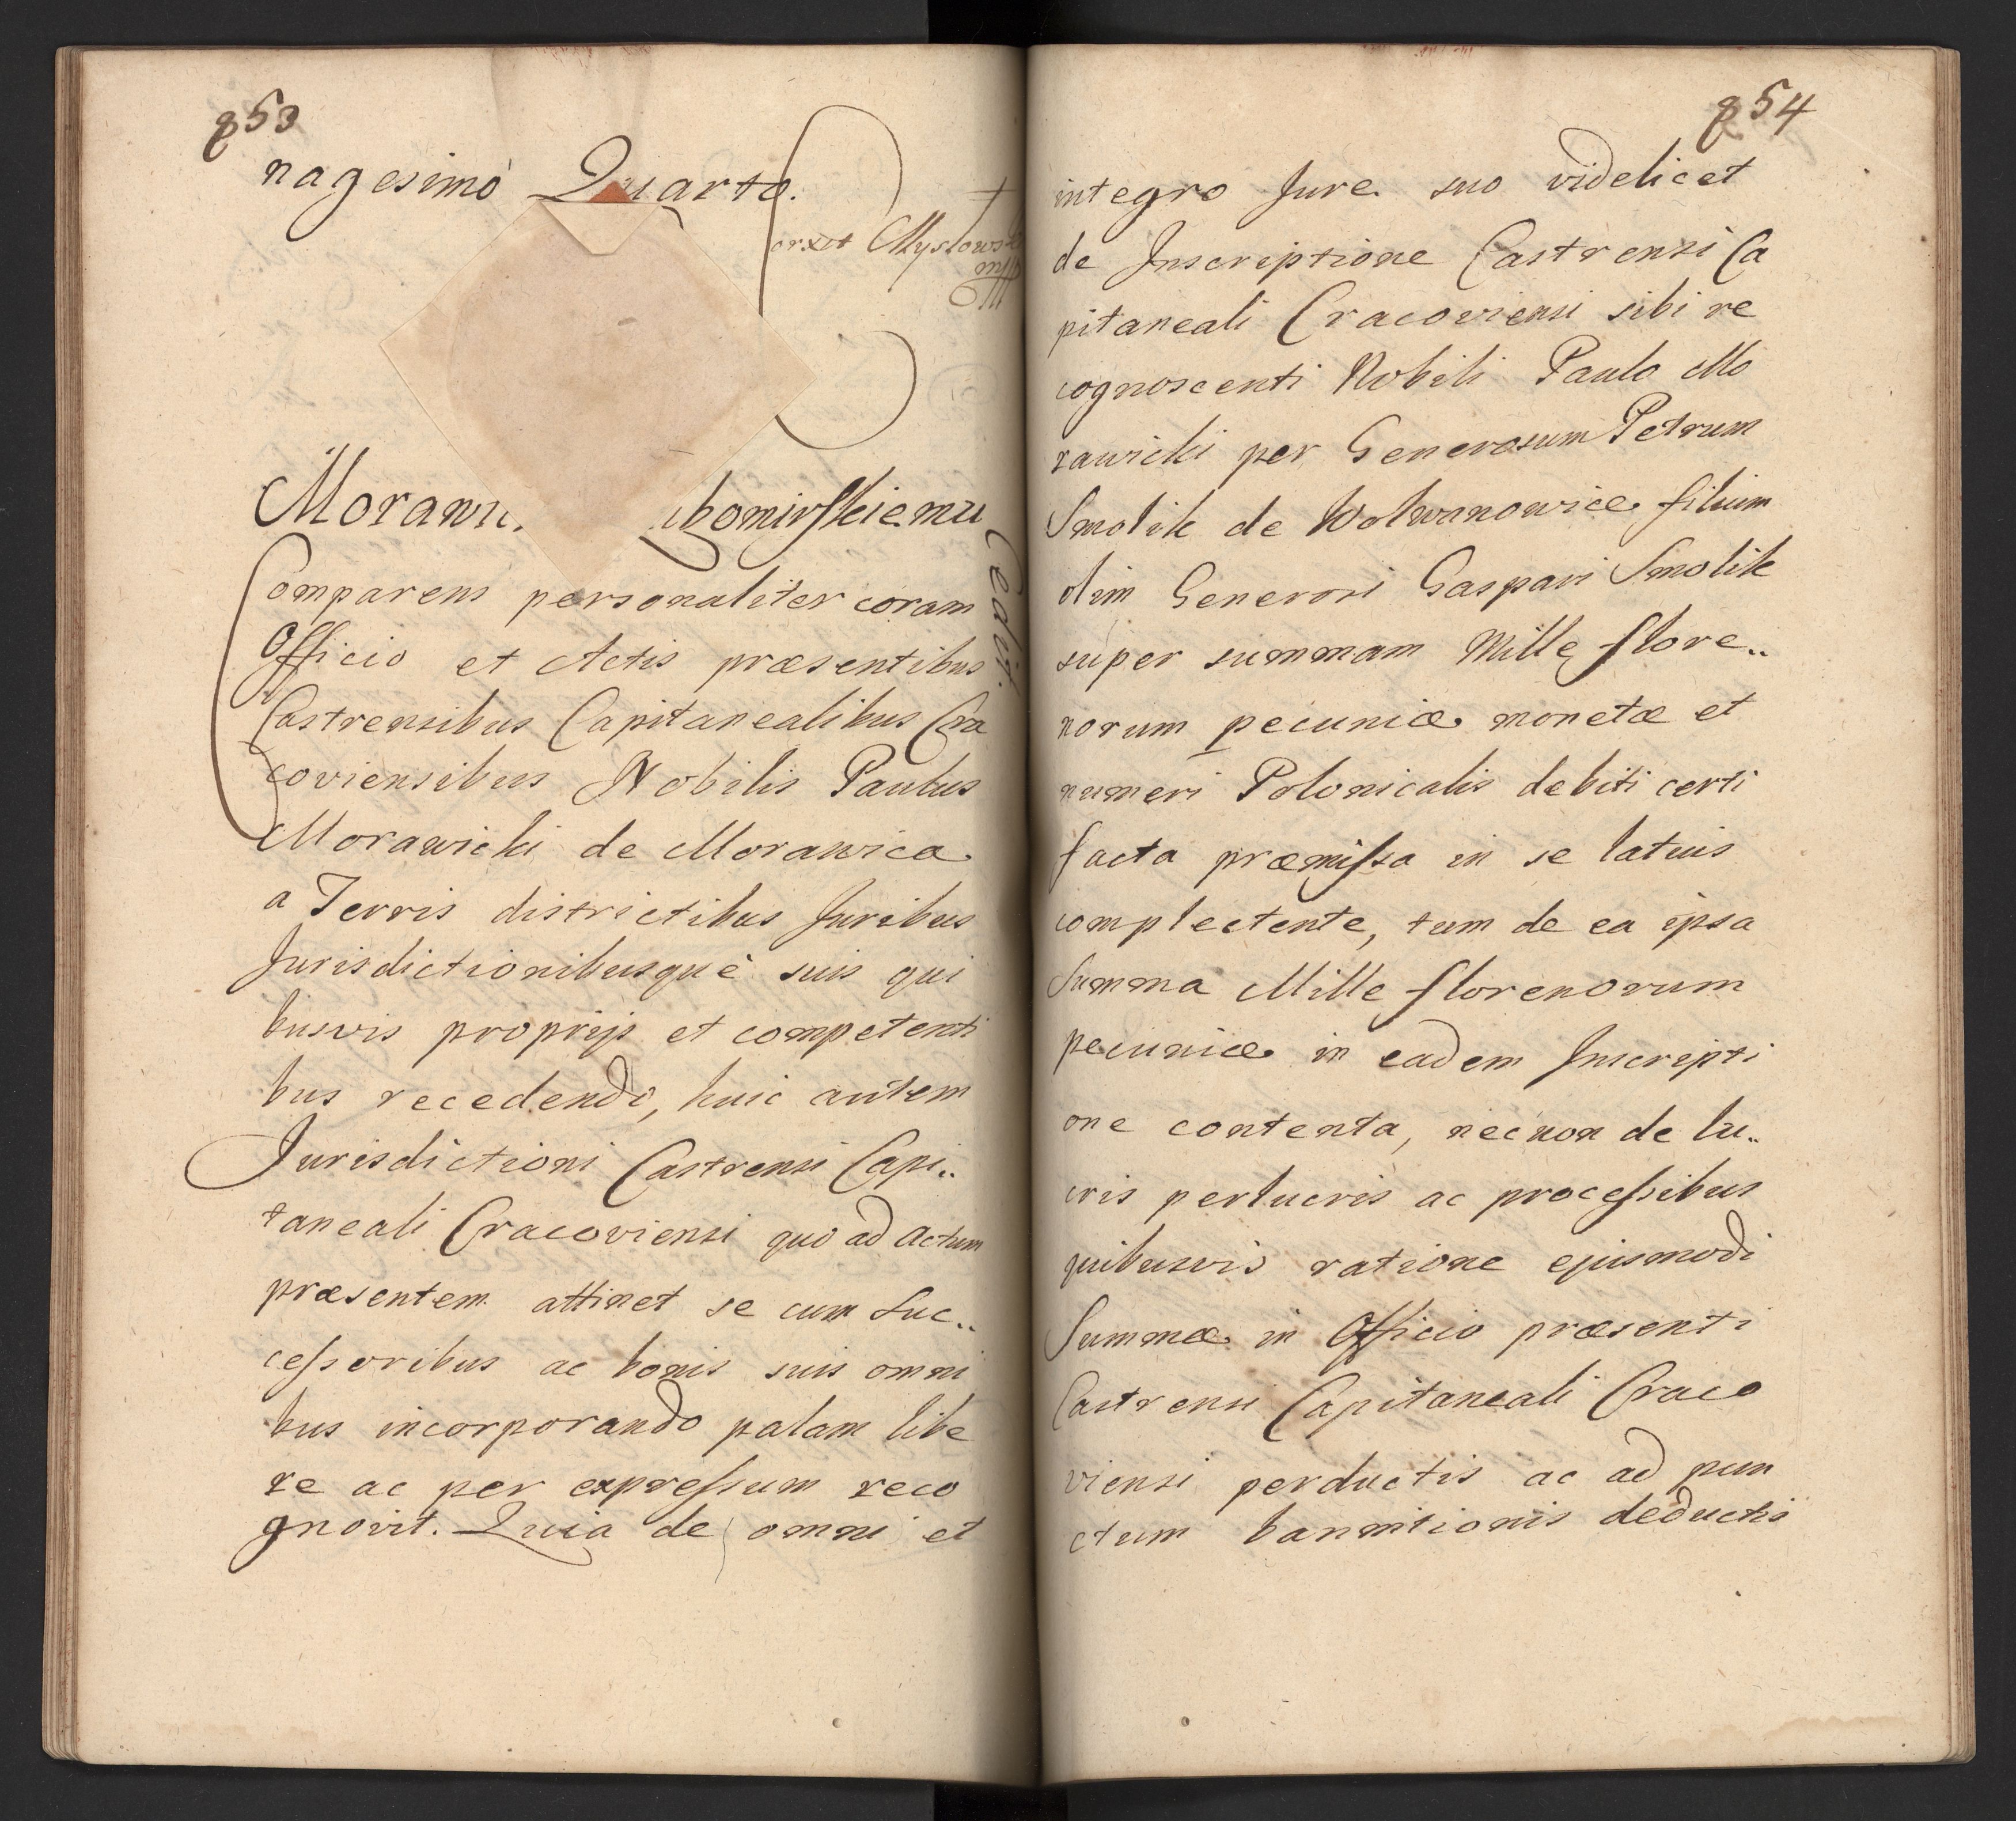 853
nagesimò Quarto.
Mÿslows
Morawi. ubomirskiemu
Cedit.
Comparens personaliter coram
Officio et Actis præsentibus
Castrensibus Capitanealibus Cra
coviensibus Nobilis Paulus
Morawicki de Morawica
a Terris districtibus Juribus
Jurisdictionibusquè suis qui
busvis proprijs et competenti
bus recedendo, huic autem
Jurisdictioni Castrensi Capi..
taneali Cracoviensi quo ad actum
præsentem attinet se cum Suc..
cessoribus ac bonis suis omni
bus incorporando palam libe
re ac per expressum reco
gnovit. Quia de omni et
854
integro Jure suo videlicet
de Inscriptione Castrensi Ca
pitaneali Cracoviensi sibi re
cognoscenti Nobili Paulo Mo
rawicki per Generosum Petrum
Smolik de Wolwanowice filium
olim Generosi Gaspari Smolik
super summam Mille flore..
norum pecuniæ monetæ et
numeri Polonicalis debiti certi
facta præmissa in se latius
complectente, tum de ea ipsa
Summa Mille florenorum
pecuniæ in eadem Inscripti
one contenta, necnon de lu..
cris perlucris ac processibus
quibusvis ratione ejusmodi
Summæ in Officio præsenti
Castrensi Capitaneali Craco
viensi perductis ac ad pun
ctum bannitionis deductis